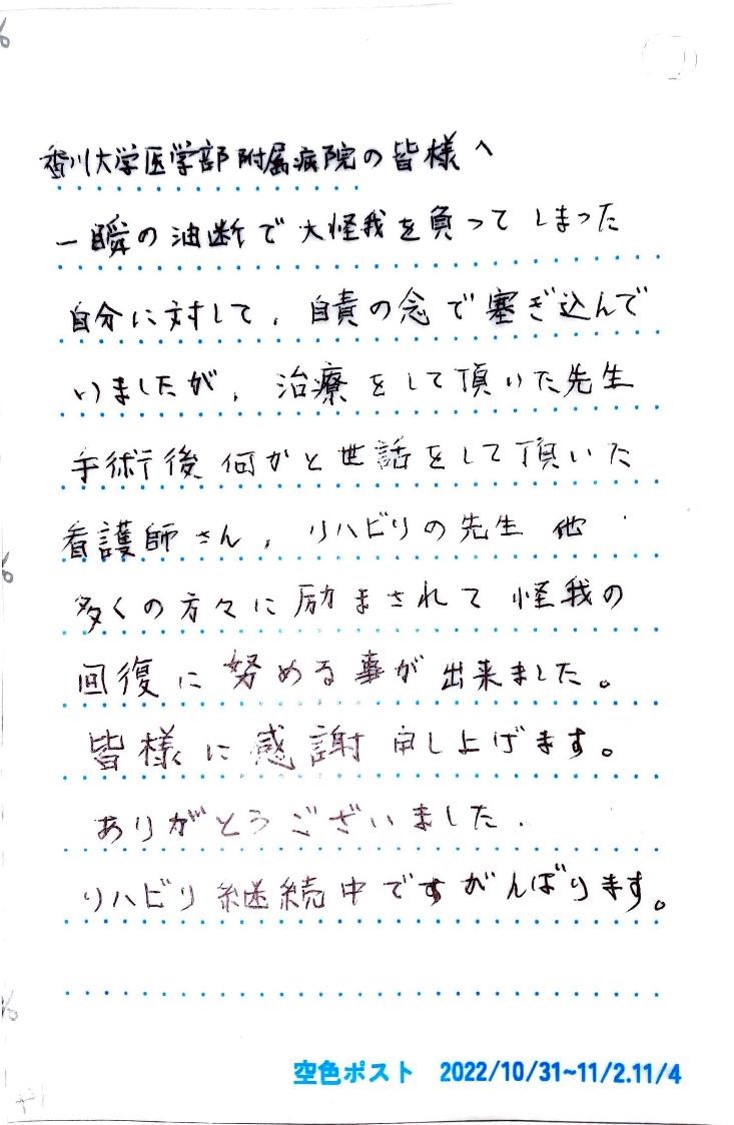 香川大学医学部附属病院の皆様へ
一瞬の油断で大怪我を負ってしまった
自分に対して、自責の念で塞ぎ込んで
いましたが、治療をして頂いた先生
手術後何かと世話をして頂いた
看護師さん、リハビリの先生 他
多くの方々に励まされて怪我の
回復に努める事が出来ました。
皆様に感謝申し上げます。
ありがとうございました.
リハビリ継続中ですがんばります。
空色ポスト 2022/10/31~11/2.11/4